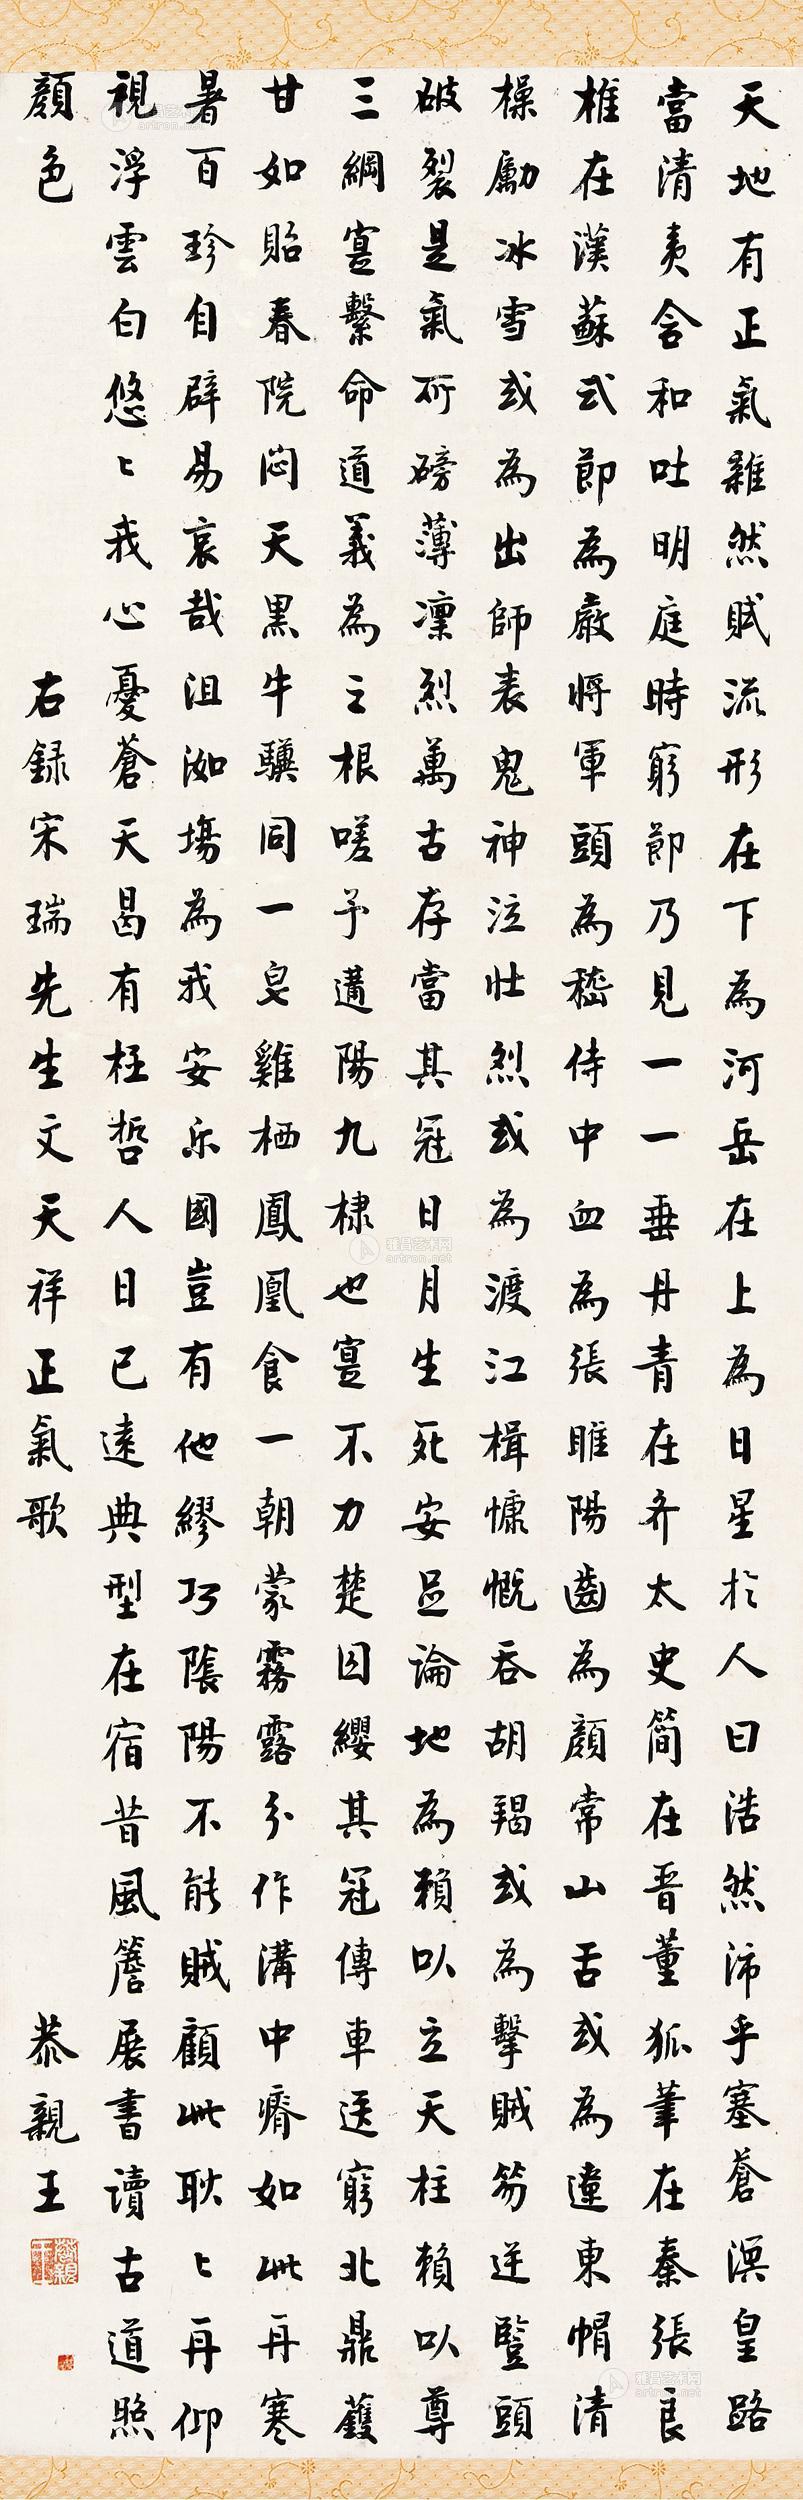 天地有正氣雜然賦流形在下為河岳在上為日星於人曰浩然沛乎塞蒼溟皇路
當清夷含和吐明庭時窮節乃見一一垂丹青在齊太史簡在晉董狐筆在秦張良
椎在漢蘇武節為嚴將軍頭為嵇侍中血為張睢陽齒為顏常山舌或為遼東帽清
操勵冰雪或為出師表鬼神泣壯烈或為渡江楫慷慨吞胡羯或為擊賊笏逆豎頭
破裂是氣所磅薄凜烈萬古存當其冠日月生死安足論地為賴以立天柱賴以尊
三綱寔繫命道義為之根嗟予遘陽九棣也寔不力楚囚纓其冠傳車送窮北鼎鑊
甘如貽春院悶天黑牛驥同一皂雞栖鳳凰食一朝蒙霧露分作溝中瘠如此再寒
暑百珍自辟易哀哉沮洳場為我安樂國豈有他繆巧陰陽不能賊顧此耿々再仰
視浮雲白悠々我心憂蒼天曷有極哲人日已遠典型在宿昔風簷展書讀古道照
顏色
右錄宋瑞先生文天祥正氣歌
恭親王
雅昌艺术网
artron.net
雅昌艺术网
artron.net
雅昌艺术网
artron.net